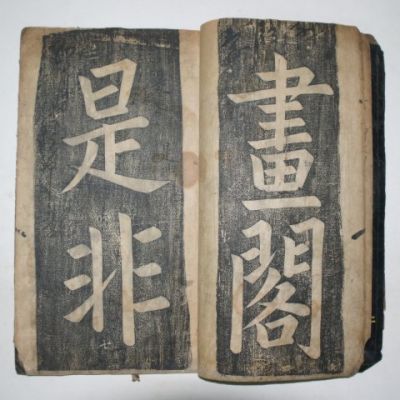 畫閣
是非